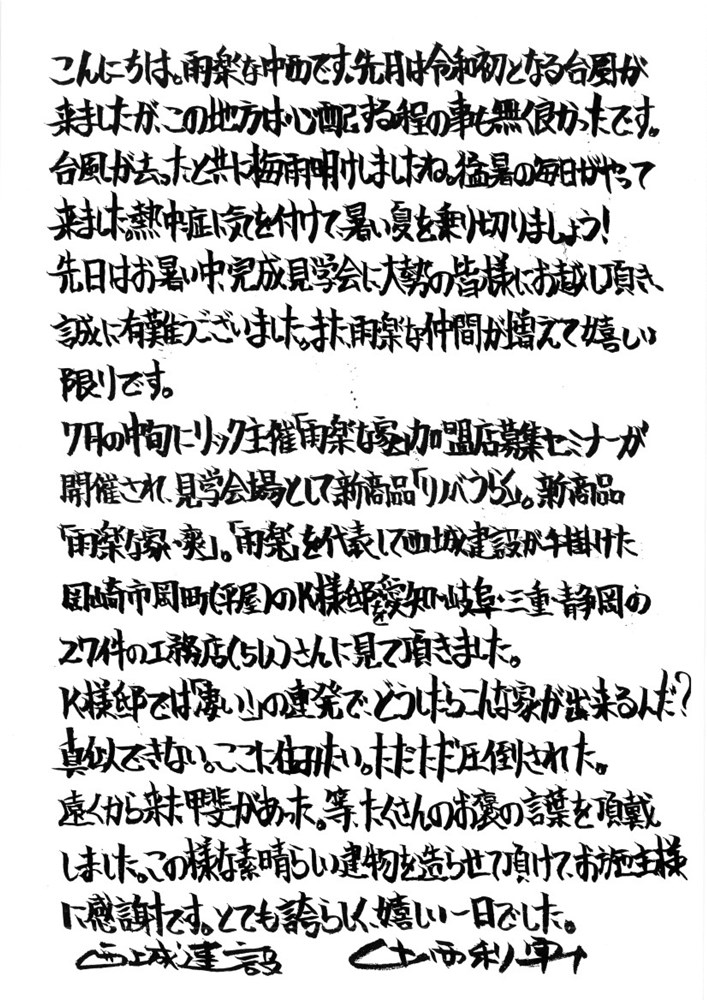 こんにちは。雨楽な中西です。先月は令和初となる台風が
来ましたが、この地方は心配する程の事も無く良かったです。
台風が去ったと共に梅雨明けしましたね。猛暑の毎日がやって
来ました。熱中症に気を付けて、暑い夏を乗り切りましょう!
先日はお暑い中、完成見学会に大勢の皆様にお越し頂き、
誠に有難うございました。また雨楽な仲間が増えて嬉しい
限りです。
7月の中旬にリック主催「雨楽な家」加盟店募集セミナーが
開催され、見学会場として新商品「リノバうらく」。新商品
「雨楽な家・爽」。「雨楽」を代表して西城建設が手掛けた
岡崎市岡町(平屋)のK様邸を愛知・岐阜・三重・静岡の
27件の工務店(51人)さんに見て頂きました。
K様邸では「凄い!」の連発で、どうしたらこんな家が出来るんだ?
真似できない。ここに住みたい。ただただ圧倒された。
遠くから来た甲斐があった。等、たくさんのお褒の言葉を頂戴
しました。この様な素晴らしい建物を造らせて頂けて、お施主様
に感謝です。とても誇らしく、嬉しい一日でした。
西城建設 中西利